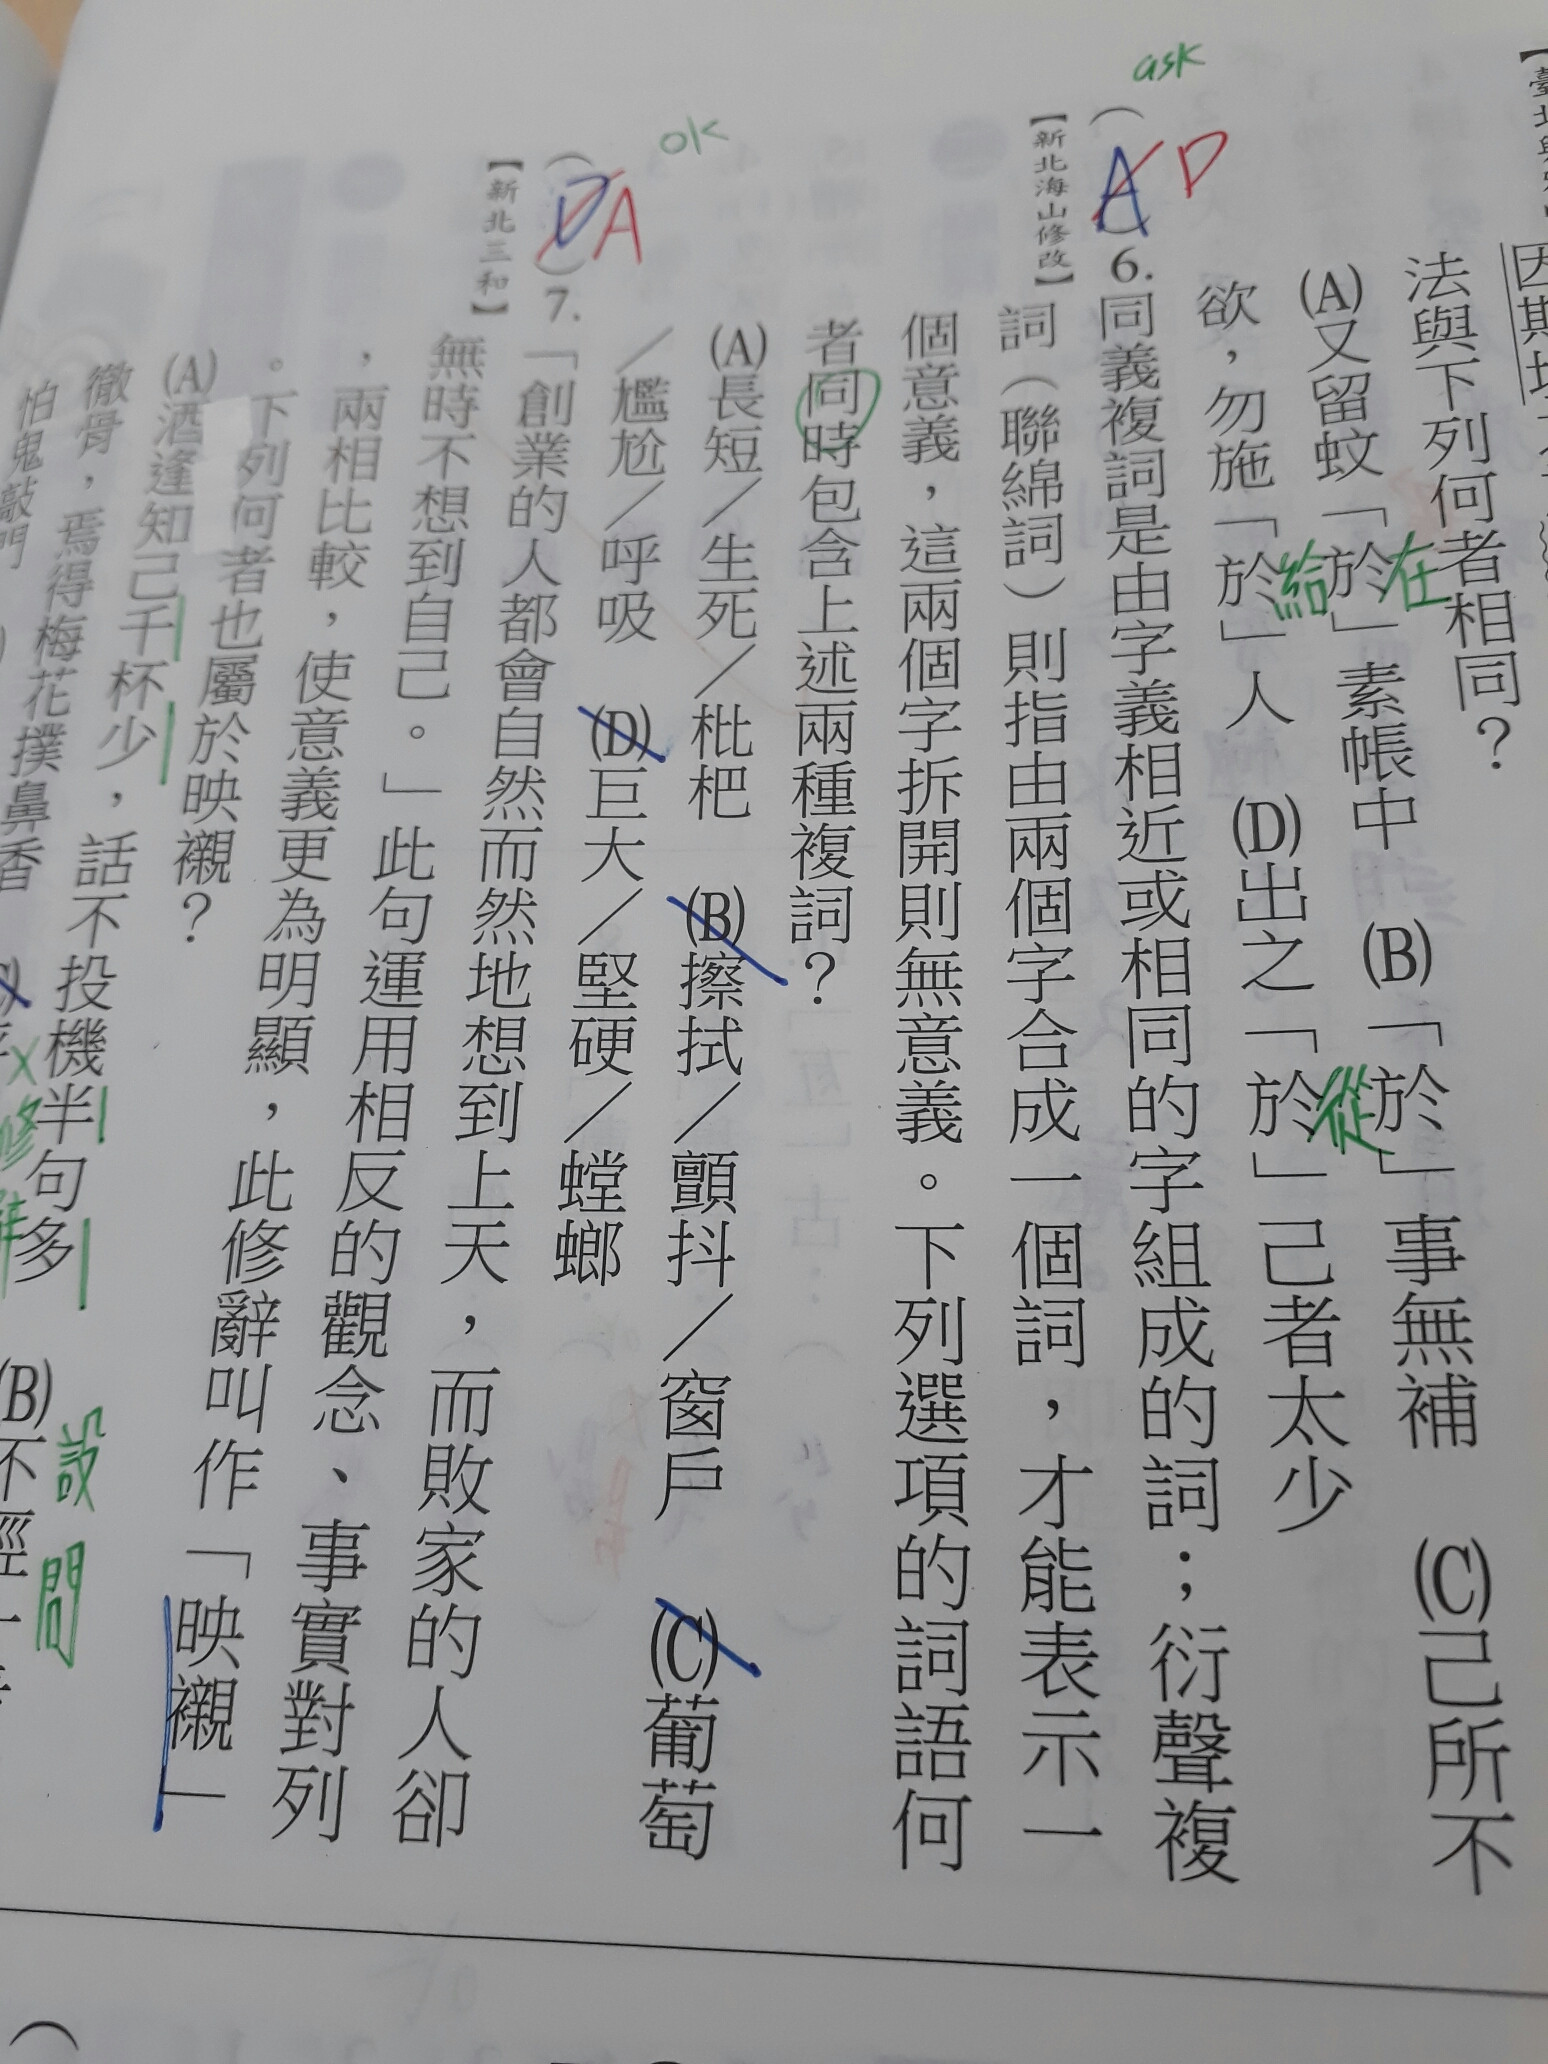 【臺北
因斯
法與下列何者相同？
(A)又留蚊「於」素帳中　(B)「於」事無補　(C)己所不
在
從
給
欲，勿施「於」人　(D)出之「於」己者太少
ask
(A)6.同義複詞是由字義相近或相同的字組成的詞；衍聲複
D
【新北海山修改】
詞（聯綿詞）則指由兩個字合成一個詞，才能表示一
個意義，這兩個字拆開則無意義。下列選項的詞語何
者同時包含上述兩種複詞？
(A)長短／生死／枇杷　(B)擦拭／顫抖／窗戶　(C)葡萄
／尷尬／呼吸　(D)巨大／堅硬／螳螂
ok
(D)7.「創業的人都會自然而然地想到上天，而敗家的人卻
A
【新北三和】
無時不想到自己。」此句運用相反的觀念、事實對列
，兩相比較，使意義更為明顯，此修辭叫作「映襯」
。下列何者也屬於映襯？
(A)酒逢知己千杯少，話不投機半句多　(B)不經一
設問
徹骨，焉得梅花撲鼻香
修
怕鬼敲門